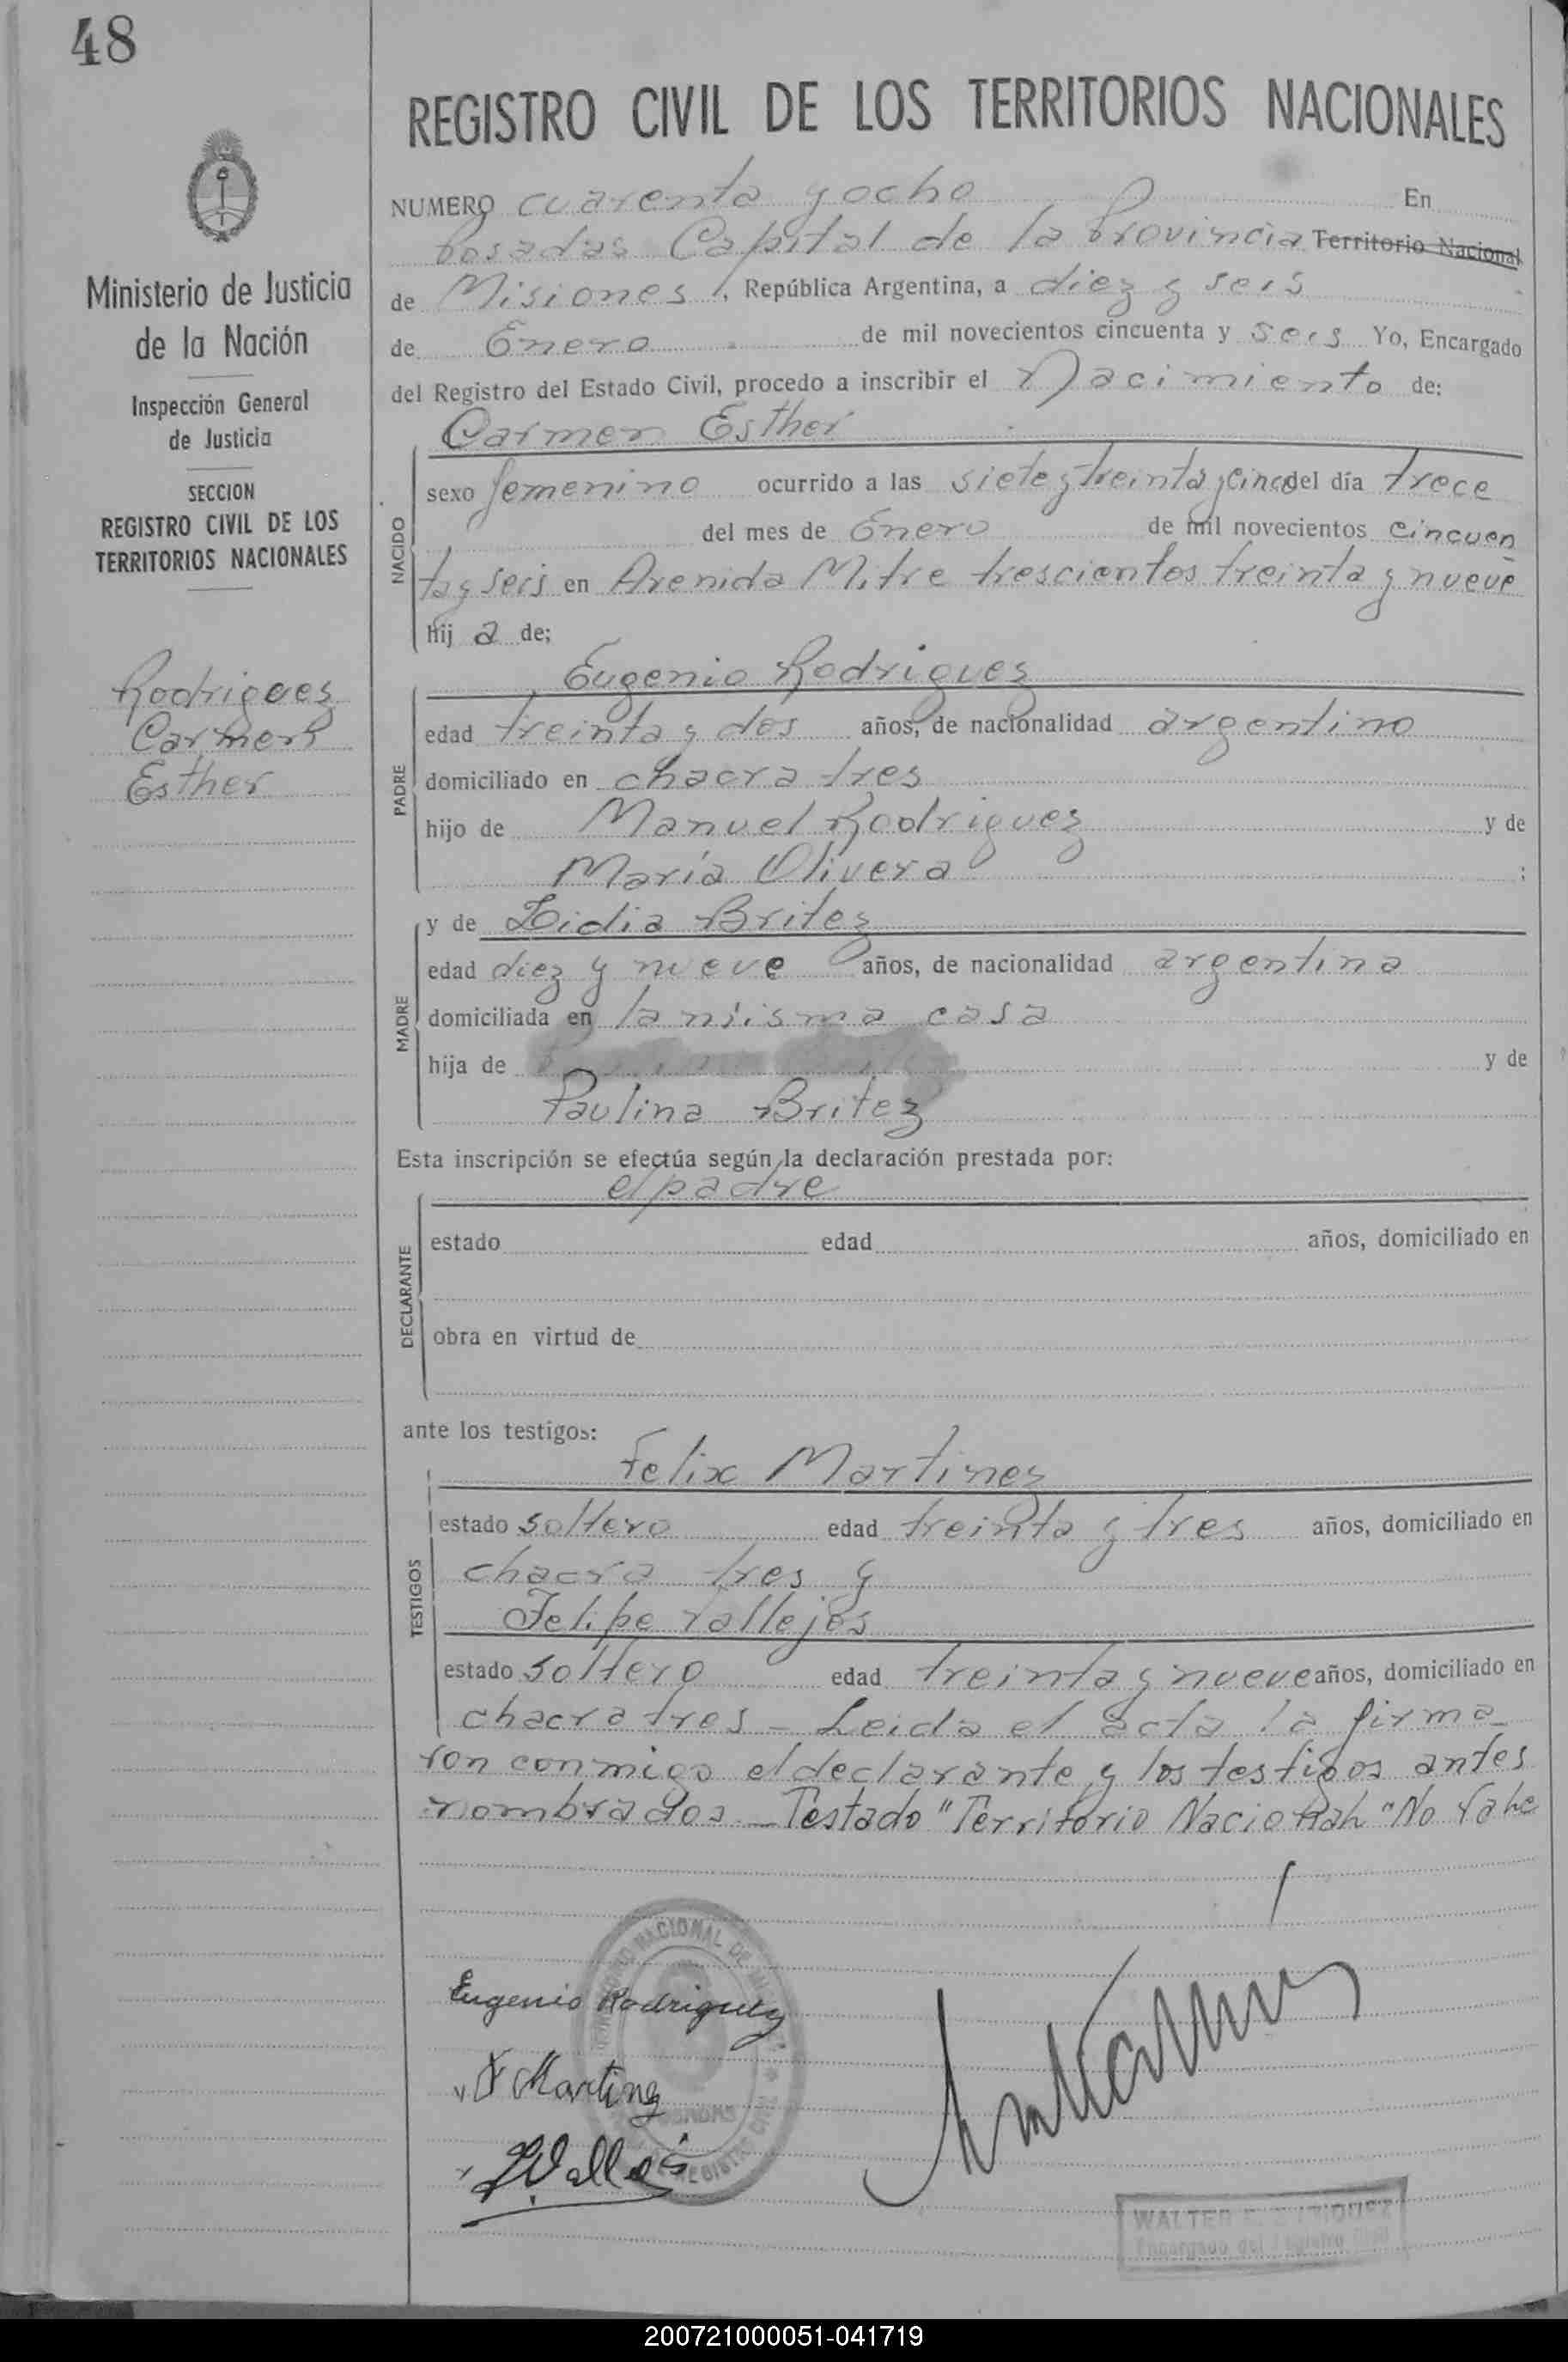 48
Ministerio de Justicia
de la Nación
Inspección General
de Justicia
SECCION
REGISTRO CIVIL DE LOS
TERRITORIOS NACIONALES
Rodriguez
Carmen
Esther
REGISTRO CIVIL DE LOS TERRITORIOS NACIONALES
NUMERO cuarenta y ocho En
Posadas Capital de la Provincia Territorio Nacional
de Misiones, República Argentina, a diez y seis
de Enero de mil novecientos cincuenta y seis Yo, Encargado
del Registro del Estado Civil, procedo a inscribir el Nacimiento de:
Carmen Esther
NACIDO
sexo femenino ocurrido a las siete y treinta y cinco del día trece
del mes de Enero de mil novecientos cincuen
ta y seis en Avenida Mitre trescientos treinta y nueve
hij a de;
Eugenio Rodriguez
PADRE
edad treinta y dos años, de nacionalidad argentino
domiciliado en chacra tres
hijo de Manuel Rodriguez y de
María Olivera ;
y de Lidia Britez
MADRE
edad diez y nueve años, de nacionalidad argentina
domiciliada en la misma casa
hija de y de
Paulina Britez
Esta inscripción se efectúa según la declaración prestada por:
el padre
DECLARANTE
estado edad años, domiciliado en
obra en virtud de
ante los testigos:
Felix Martinez
TESTIGOS
estado soltero edad treinta y tres años, domiciliado en
chacra tres y
Felipe Vallejos
estado soltero edad treinta y nueve años, domiciliado en
chacra tres - Leida el acta la firma
ron conmigo el declarante y los testigos antes
nombrados. - Testado "Territorio Nacional" No Vale
NACIONAL DE
REGISTRO
Eugenio Rodriguez
F Martinez
WALTER
Encargado del Registro Civil
200721000051-041719